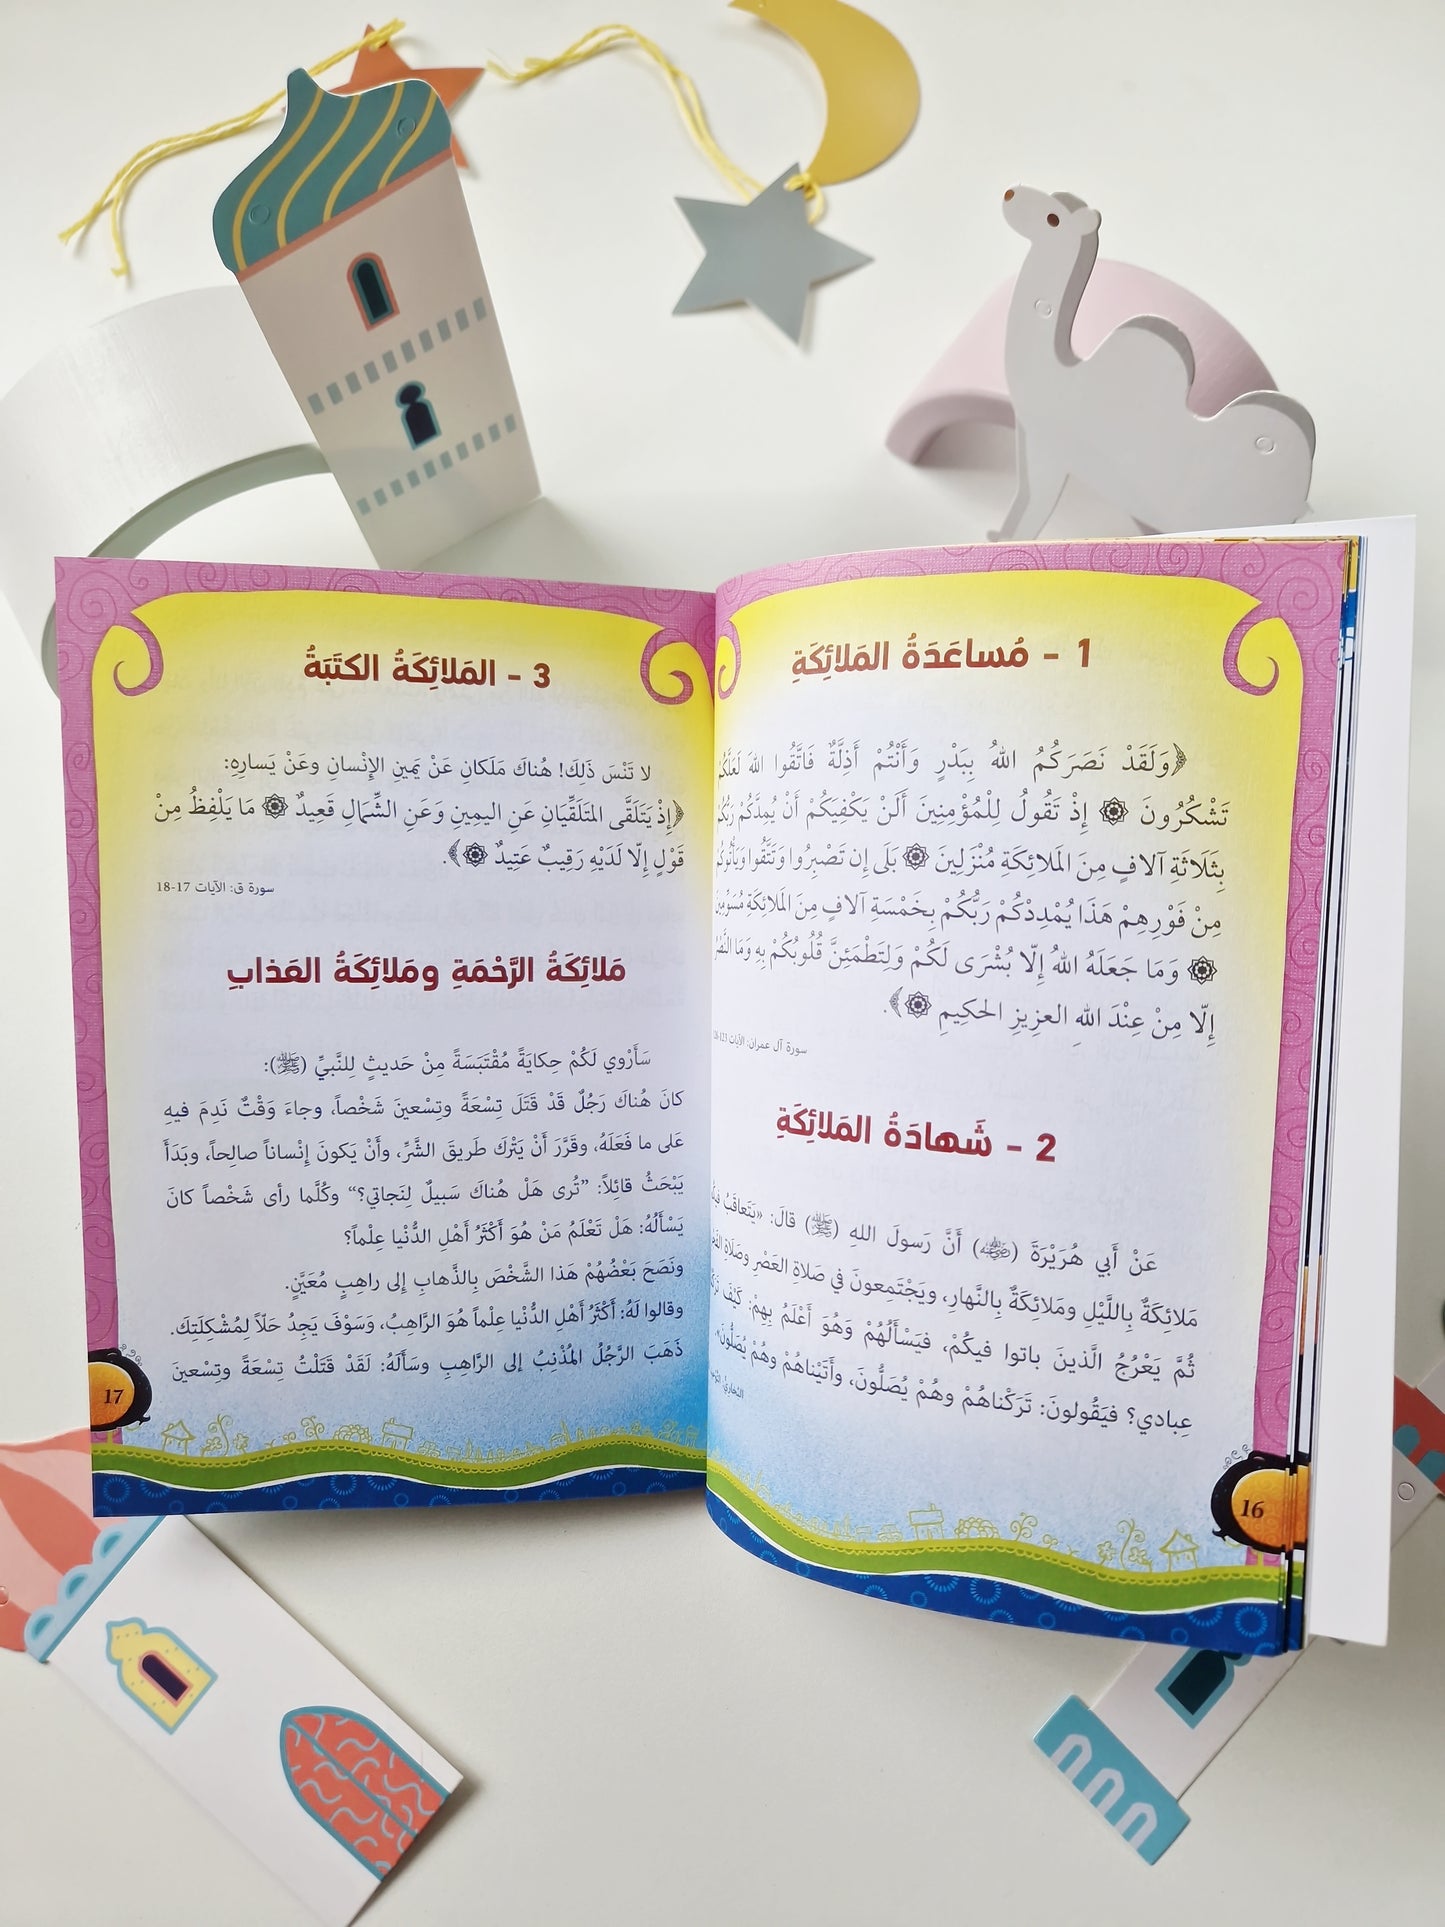 1 - مُساعَدَةُ المَلائِكَةِ
﴿وَلَقَدْ نَصَرَكُمُ اللهُ بِبَدْرٍ وَأَنْتُمْ أَذِلَّةٌ فَاتَّقُوا اللهَ لَعَلَّكُمْ
تَشْكُرُونَ ۞ إِذْ تَقُولُ لِلْمُؤْمِنِينَ أَلَنْ يَكْفِيَكُمْ أَنْ يُمِدَّكُمْ رَبُّكُمْ
بِثَلَاثَةِ آلافٍ مِنَ المَلائِكَةِ مُنْزَلِينَ ۞ بَلَى إِن تَصْبِرُوا وَتَتَّقُوا وَيَأْتُوكُمْ
مِنْ فَوْرِهِمْ هَذَا يُمْدِدْكُمْ رَبُّكُمْ بِخَمْسَةِ آلافٍ مِنَ المَلائِكَةِ مُسَوِّمِينَ
۞ وَمَا جَعَلَهُ اللهُ إِلّا بُشْرَى لَكُمْ وَلِتَطْمَئِنَّ قُلُوبُكُمْ بِهِ وَمَا النَّصْرُ
إِلّا مِنْ عِنْدَ اللهِ العزِيزِ الحكِيمِ ۞﴾.
سورة آل عمران: الآيات
2 - شَهادَةُ المَلائِكَةِ
عَنْ أَبي هُرَيْرَةَ (ﷺ) أَنَّ رَسولَ اللهِ (ﷺ) قالَ: «يَتَعاقَبُ
مَلائِكَةٌ بِاللَّيْلِ ومَلائِكَةٌ بِالنَّهارِ، ويَجْتَمِعونَ في صَلاةِ العَصْرِ وصَلَاةِ
ثُمَّ يَعْرُجُ الَّذينَ باتوا فيكُمْ، فيَسْأَلُهُمْ وَهُوَ أَعْلَمُ بِهِمْ: كَيْفَ
عِبادي؟ فيَقُولونَ: تَرَكْناهُمْ وهُمْ يُصَلُّونَ، وأَتَيْناهُمْ وهُمْ يُصَلُّونَ».
16
3 - المَلائِكَةُ الكتَبَةُ
لا تَنْسَ ذَلِكَ! هُناكَ مَلَكانِ عَنْ يَمينِ الإِنْسانِ وعَنْ يَسارِهِ:
﴿إِذْ يَتَلَقَّى المُتَلَقِّيَانِ عَنِ اليمِينِ وَعَنِ الشِّمالِ قَعِيدٌ ۞ مَا يَلْفِظُ مِنْ
قَوْلٍ إِلّا لَدَيْهِ رَقِيبٌ عَتِيدٌ ۞﴾.
سورة ق: الآيات 17-18
مَلائِكَةُ الرَّحْمَةِ ومَلائِكَةُ العَذابِ
سَأَرْوي لَكُمْ حِكايَةً مُقْتَبَسَةً مِنْ حَديثٍ لِلنَّبيِّ (ﷺ):
كانَ هُناكَ رَجُلٌ قَدْ قَتَلَ تِسْعَةً وتِسْعينَ شَخْصاً، وجاءَ وَقْتٌ نَدِمَ فيهِ
عَلى ما فَعَلَهُ، وقَرَّرَ أَنْ يَتْرُكَ طَريقَ الشَّرِّ، وأَنْ يَكونَ إِنْساناً صالِحاً، وبَدَأَ
يَبْحَثُ قائِلاً: "تُرى هَلْ هُناكَ سَبيلٌ لِنَجاتي؟" وكُلَّما رأى شَخْصاً كانَ
يَسْأَلُهُ: هَلْ تَعْلَمُ مَنْ هُوَ أَكْثَرُ أَهْلِ الدُّنْيا عِلْماً؟
ونَصَحَ بَعْضُهُمْ هَذا الشَّخْصَ بِالذَّهابِ إِلى راهِبٍ مُعَيَّنٍ.
وقالوا لَهُ: أَكْثَرُ أَهْلِ الدُّنْيا عِلْماً هُوَ الرَّاهِبُ، وَسَوْفَ يَجِدُ حَلّاً لِمُشْكِلَتِكَ.
ذَهَبَ الرَّجُلُ المُذْنِبُ إلى الرَّاهِبِ وسَأَلَهُ: لَقَدْ قَتَلْتُ تِسْعَةً وتِسْعينَ
17